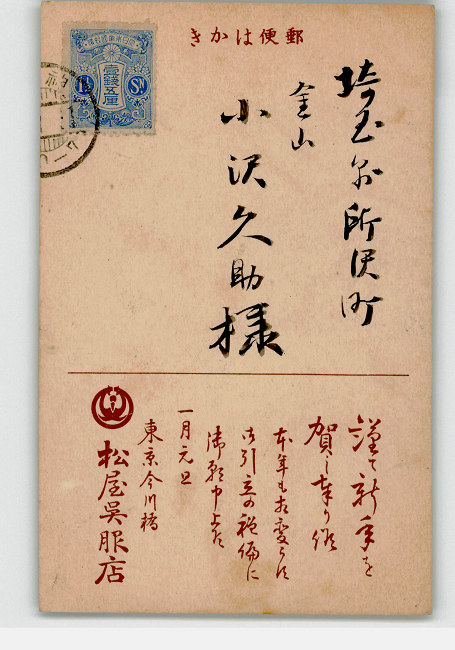 郵便はかき
壹錢五厘
1½ Sn
埼玉県所沢町
金山
小沢久助様
謹て新年を
賀し奉り候
本年も相変らず
御引立の程偏に
御願申上候
一月元旦
東京今川橋
松屋呉服店